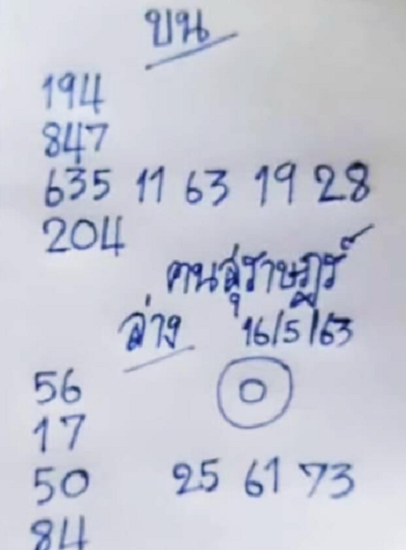 บน
194
847
635 11 63 19 28
204
คนสุราษฎร์
ล่าง 16/5/63
56 0
17
50 25 61 73
84